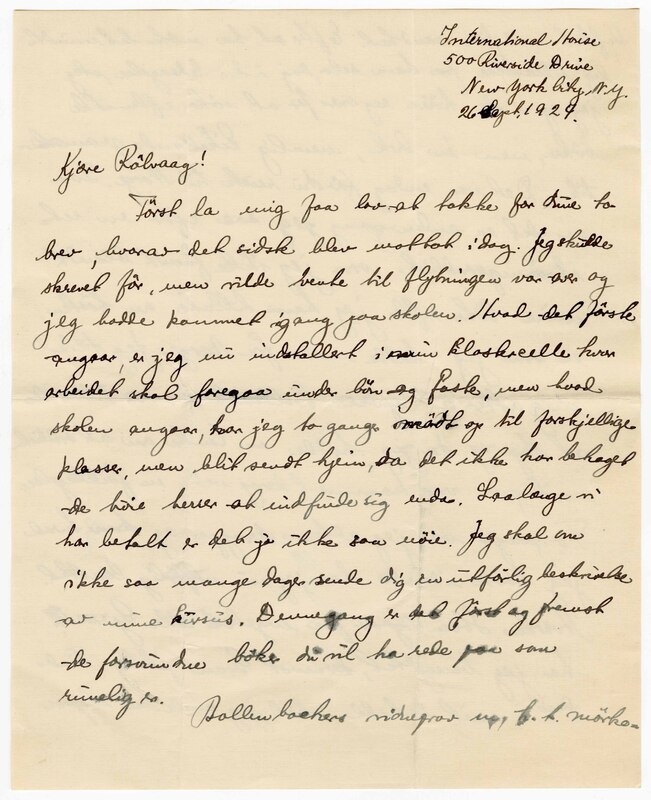 International House
500 Riverside Drive
New York City, N.Y.
26 Sept, 1929.
Kjære Rölvaag!
Först la mig faa lov at takke for dine to
brev, hvorav det sidste blev mottat idag. Jeg skulde
skrevet för, men vilde vente til flytningen var over og
jeg hadde kommet igang paa skolen. Hvad det förste
angaar, er jeg nu indstallert i min klostercelle hvor
arbeidet skal foregaa under bön og faste, men hvad
skolen angaar, har jeg to ganger mödt op til forskjellige
klasser, men blit sendt hjem, da det ikke har behaget
de höie herrer at indfinde sig enda. Saalænge vi
har betalt er det jo ikke saa nöie. Jeg skal om
ikke saa mange dager sende dig en utförlig beskrivelse
av mine kursus. Dennegang er det först og fremst
de forsvundne böker du vil ha rede paa som
rimelig er.